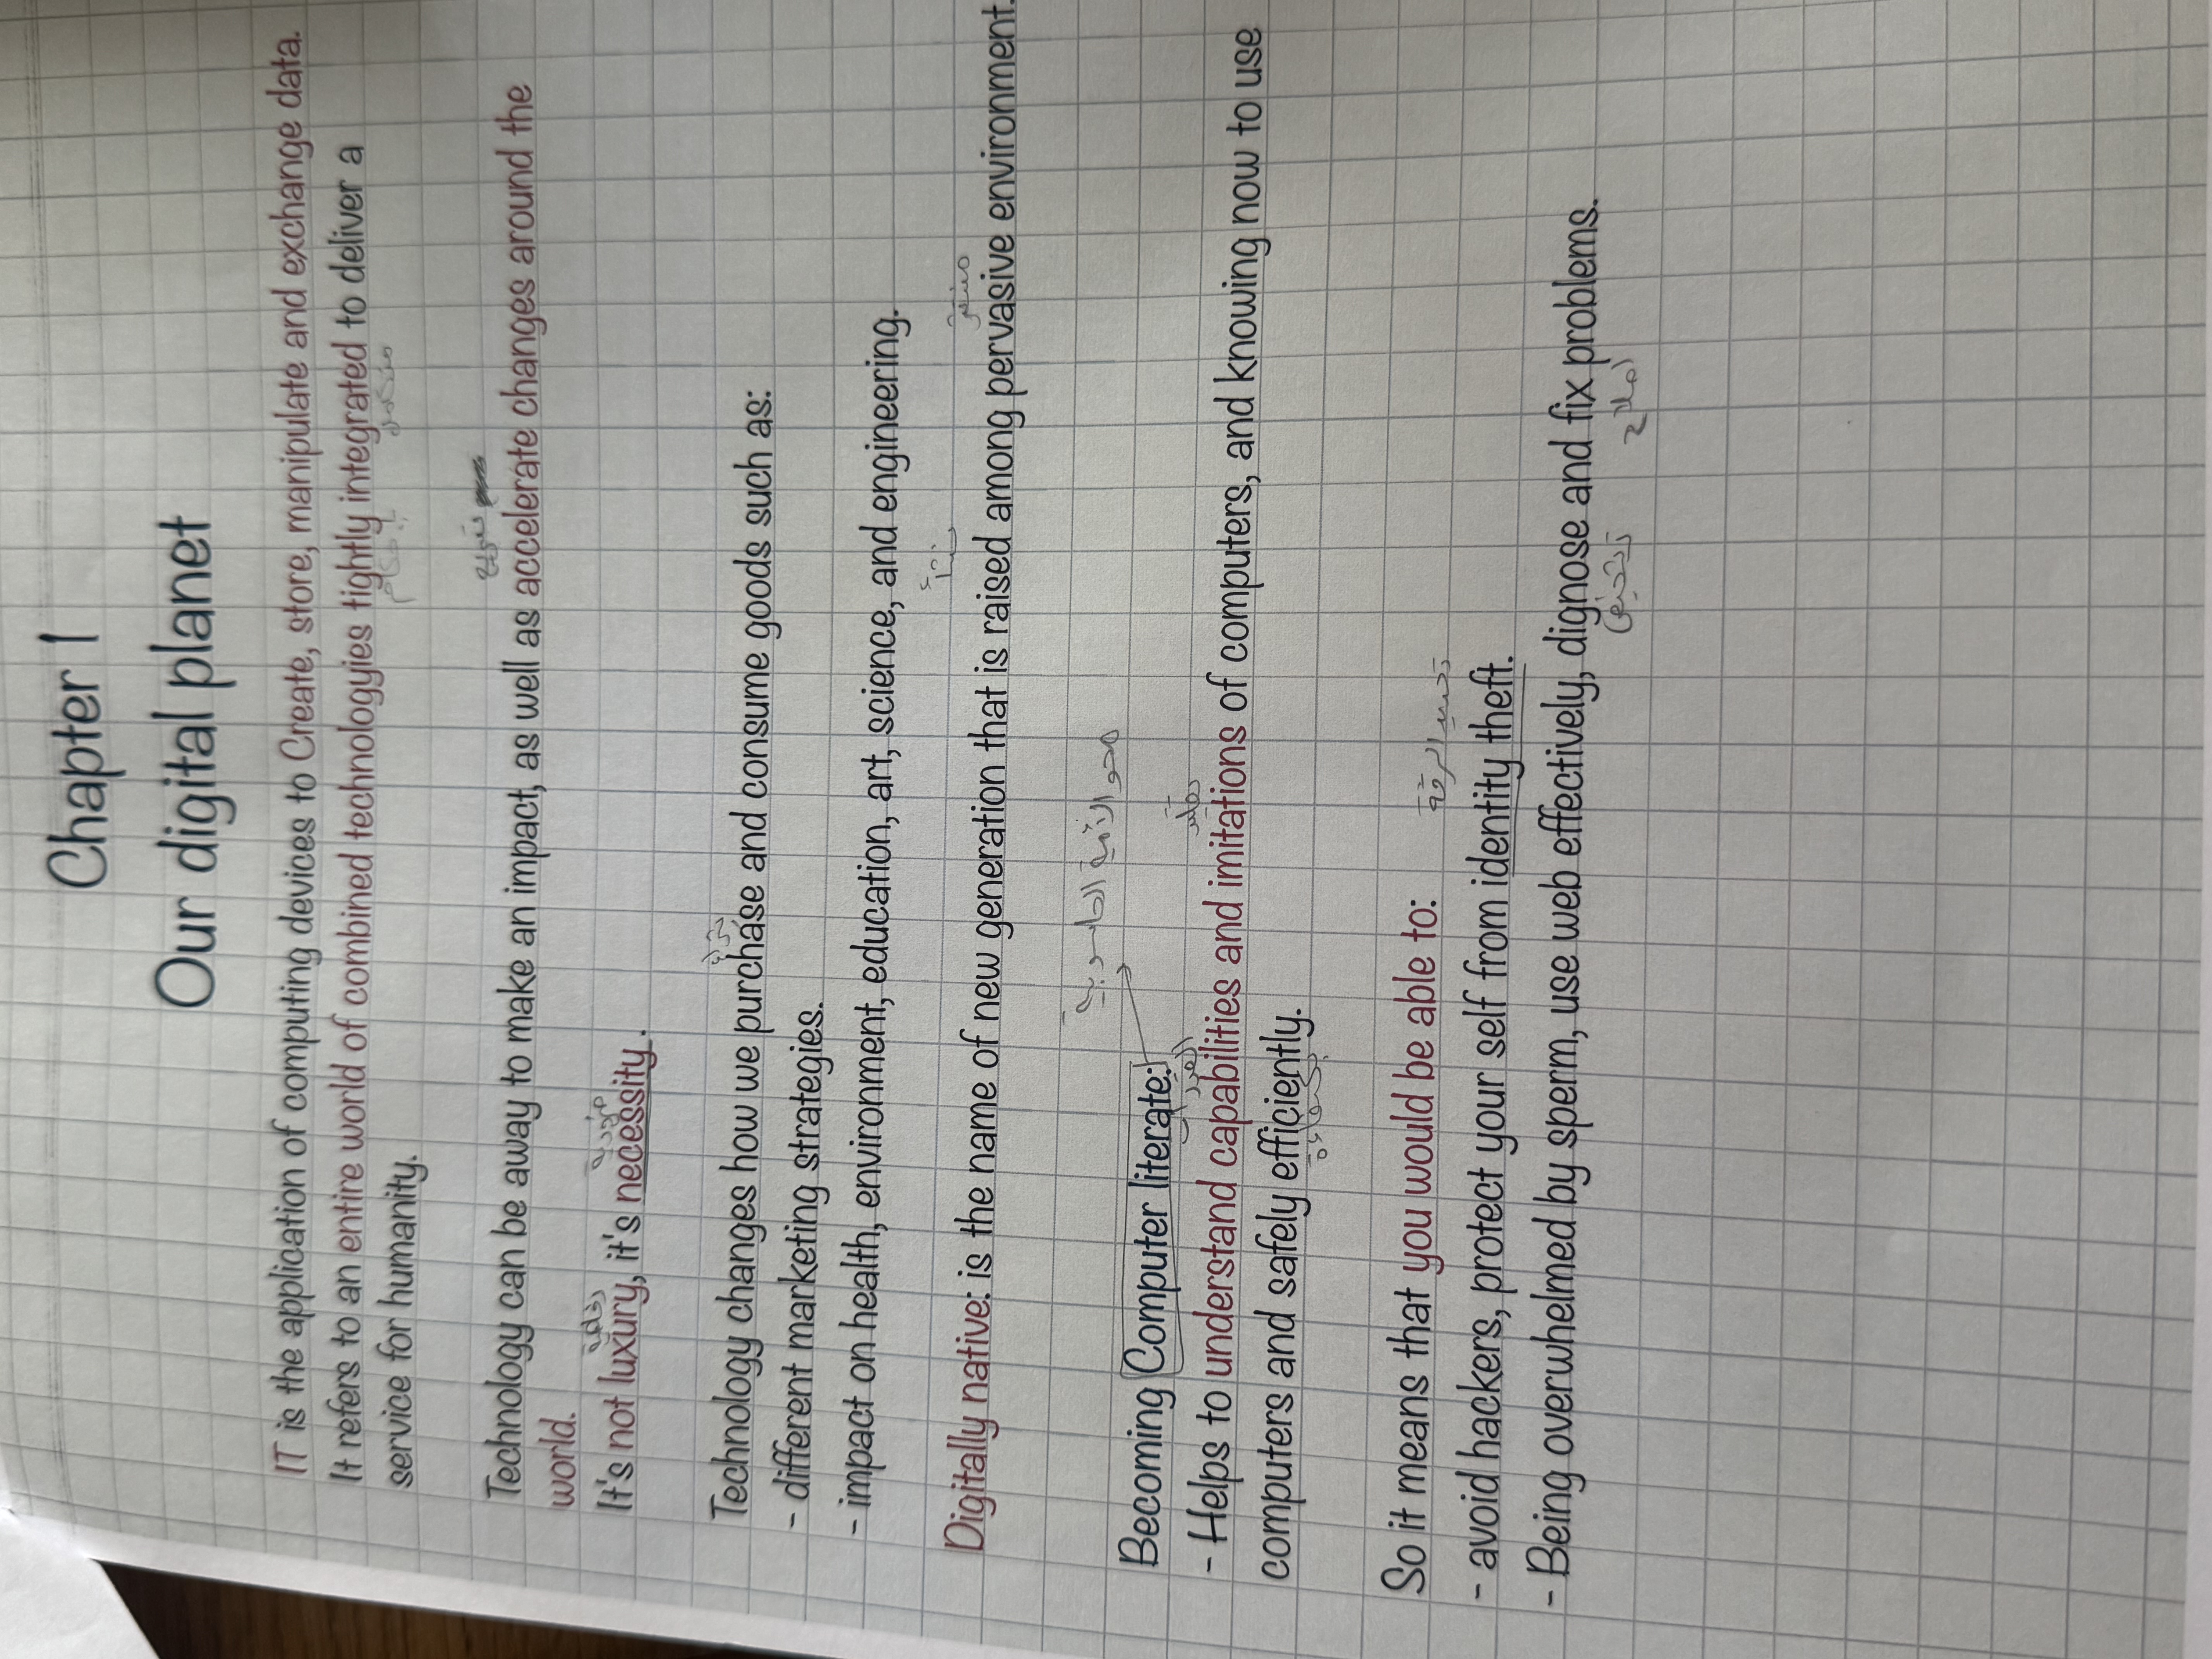 Chapter 1
Our digital planet
IT is the application of computing devices to Create, store, manipulate and exchange data.
It refers to an entire world of combined technologyies tightly integrated to deliver a
service for humanity.
تسريع
Technology can be away to make an impact, as well as accelerate changes around the
world.
رفاهية
It's not luxury, it's necessity.
شراء
Technology changes how we purchase and consume goods such as:
- different marketing strategies.
- impact on health, environment, education, art, science, and engineering.
Digitally native: is the name of new generation that is raised among pervasive environment.
محو الأمية الحاسوبية
Becoming Computer literate:
القدرات
- Helps to understand capabilities and imitations of computers, and knowing now to use
computers and safely efficiently.
So it means that you would be able to:
- avoid hackers, protect your self from identity theft.
- Being overwhelmed by sperm, use web effectively, dignose and fix problems.
تشخيص